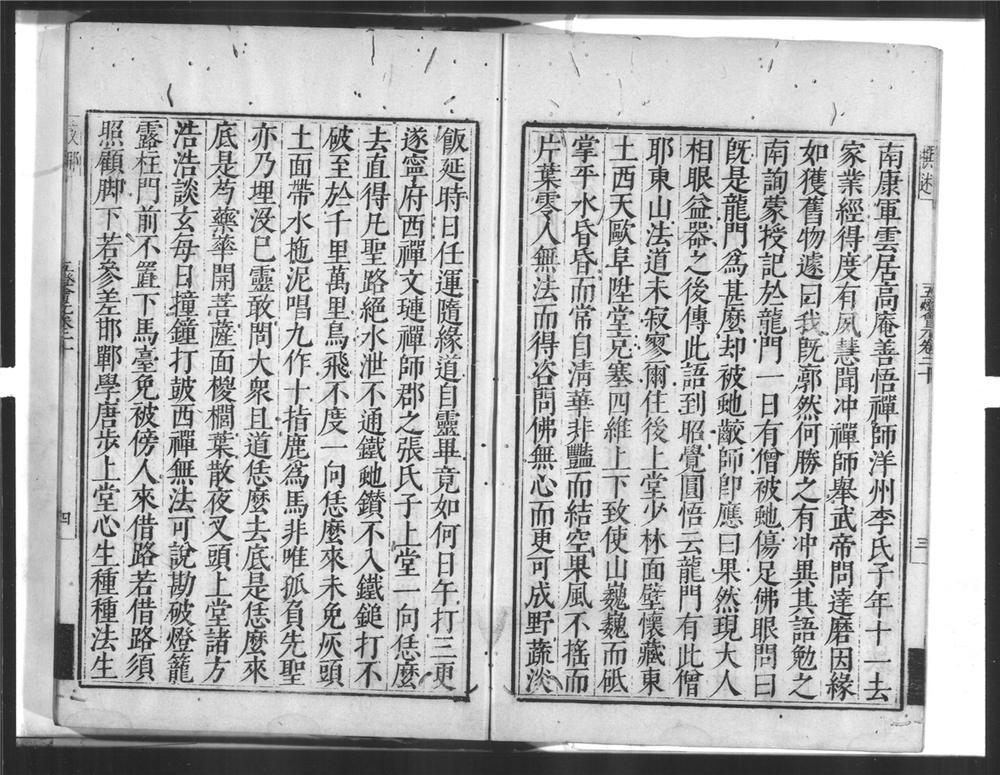 撰述
五燈會元卷二十
三
南康軍雲居高庵善悟禪師洋州李氏子年十一去
家業經得度有夙慧聞冲禪師舉武帝問達磨因緣
如獲舊物遽曰我既廓然何勝之有冲異其語勉之
南詢蒙授記於龍門一日有僧被虵傷足佛眼問曰
既是龍門爲甚麼却被虵齩師即應曰果然現大人
相眼益器之後傳此語到昭覺圓悟云龍門有此僧
耶東山法道未寂寥爾住後上堂少林面壁懷藏東
土西天歐阜陞堂充塞四維上下致使山巍巍而砥
掌平水昏昏而常自清華非豔而結空果風不搖而
片葉零人無法而得咨問佛無心而更可成野蔬淡
飯延時日任運隨緣道自靈畢竟如何日午打三更
遂寧府西禪文璉禪師郡之張氏子上堂一向恁麼
去直得凡聖路絕水泄不通鐵虵鑽不入鐵鎚打不
破至於千里萬里鳥飛不度一向恁麼來未免灰頭
土面帶水拖泥唱九作十指鹿爲馬非唯孤負先聖
亦乃埋没已靈敢問大衆且道恁麼去底是恁麼來
底是芍藥華開菩薩面椶櫚葉散夜叉頭上堂諸方
浩浩談玄每日撞鐘打皷西禪無法可說勘破燈籠
露柱門前不置下馬臺免被傍人來借路若借路須
照顧脚下若參差邯鄲學唐步上堂心生種種法生
五燈會元卷二十
四